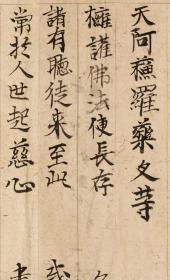 天阿蘇羅藥叉等
擁護佛法使長存
諸有聽徒来至此
常於人世起慈心